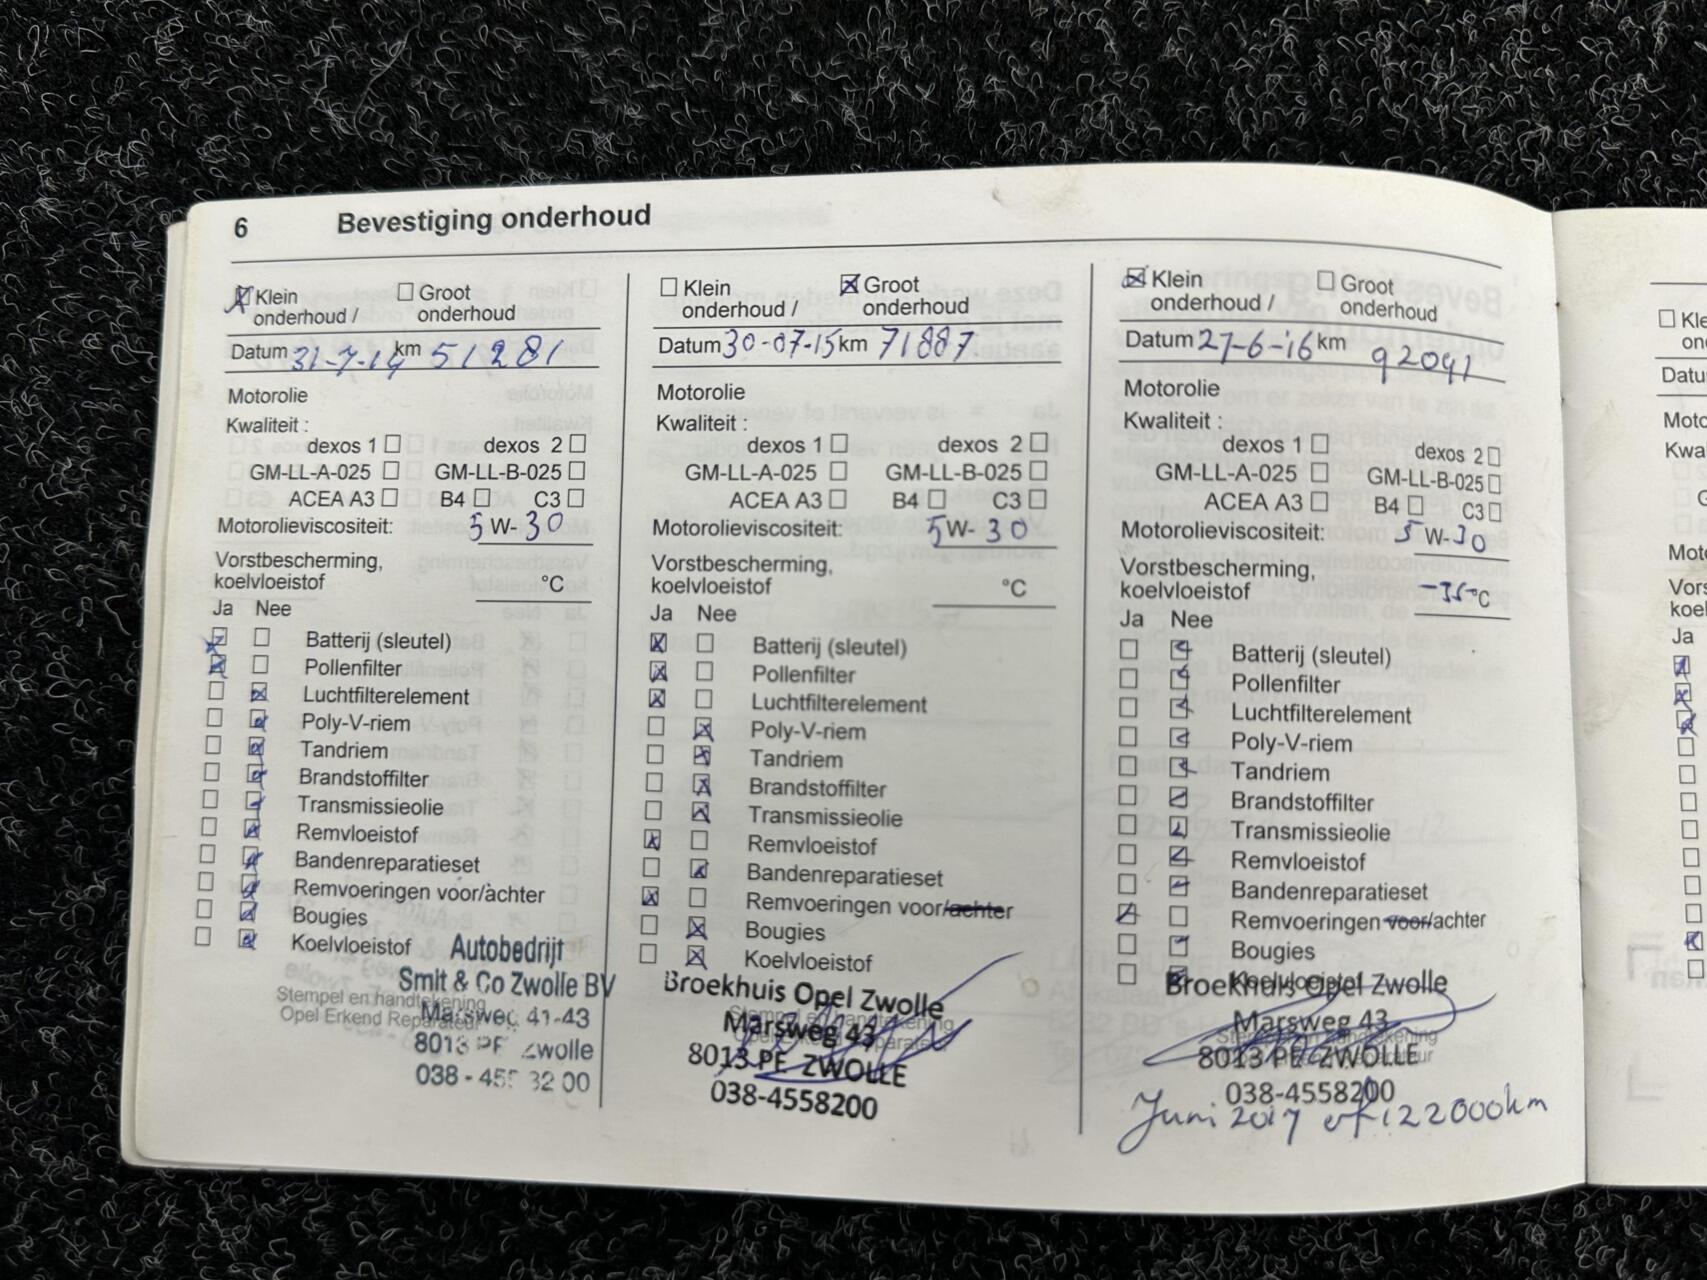 6 Bevestiging onderhoud
Klein onderhoud / Groot onderhoud
Datum 31-7-14 km 51281
Motorolie
Kwaliteit :
dexos 1 dexos 2
GM-LL-A-025 GM-LL-B-025
ACEA A3 B4 C3
Motorolieviscositeit: 5 W- 30
Vorstbescherming,
koelvloeistof °C
Ja Nee
Batterij (sleutel)
Pollenfilter
Luchtfilterelement
Poly-V-riem
Tandriem
Brandstoffilter
Transmissieolie
Remvloeistof
Bandenreparatieset
Remvoeringen voor/achter
Bougies
Koelvloeistof
Autobedrijf
Smit & Co Zwolle BV
Stempel en handtekening
Opel Erkend Reparateur
Marsweg 41-43
8013 PE Zwolle
038 - 455 82 00
Klein onderhoud / Groot onderhoud
Datum 30-07-15 km 71887
Motorolie
Kwaliteit :
dexos 1 dexos 2
GM-LL-A-025 GM-LL-B-025
ACEA A3 B4 C3
Motorolieviscositeit: 5 W- 30
Vorstbescherming,
koelvloeistof °C
Ja Nee
Batterij (sleutel)
Pollenfilter
Luchtfilterelement
Poly-V-riem
Tandriem
Brandstoffilter
Transmissieolie
Remvloeistof
Bandenreparatieset
Remvoeringen voor/achter
Bougies
Koelvloeistof
Broekhuis Opel Zwolle
Stempel en handtekening
Opel Erkend Reparateur
Marsweg 43
8013 PE ZWOLLE
038-4558200
Klein onderhoud / Groot onderhoud
Datum 27-6-16 km 92041
Motorolie
Kwaliteit :
dexos 1 dexos 2
GM-LL-A-025 GM-LL-B-025
ACEA A3 B4 C3
Motorolieviscositeit: 5 W-30
Vorstbescherming,
koelvloeistof -35 °C
Ja Nee
Batterij (sleutel)
Pollenfilter
Luchtfilterelement
Poly-V-riem
Tandriem
Brandstoffilter
Transmissieolie
Remvloeistof
Bandenreparatieset
Remvoeringen voor/achter
Bougies
Koelvloeistof
Broekhuis Opel Zwolle
Marsweg 43
8013 PE ZWOLLE
038-4558200
Juni 2017 of 122000km